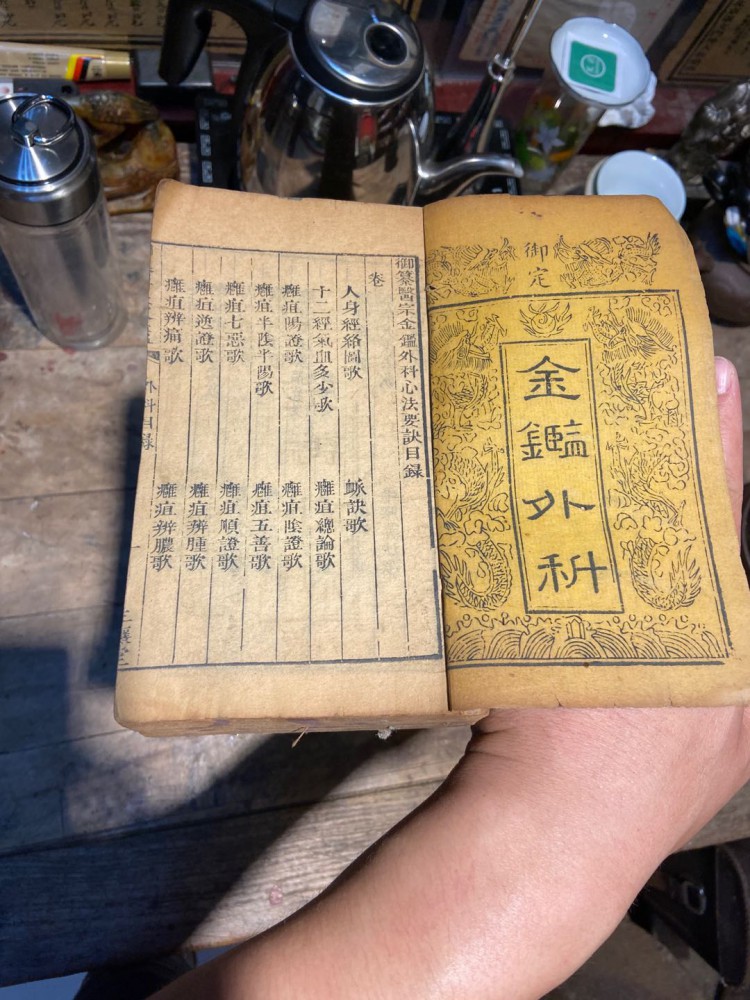 御定
金鑑外科
御纂醫宗金鑑外科心法要訣目錄
卷
人身經絡圖歌 脉訣歌
十二經氣血多少歌 癰疽總論歌
癰疽陽證歌 癰疽陰證歌
癰疽半陰半陽歌 癰疽五善歌
癰疽七惡歌 癰疽順證歌
癰疽逆證歌 癰疽辨腫歌
癰疽辨痛歌 癰疽辨膿歌
外科目錄